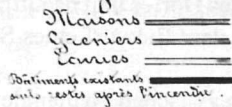 Maisons
Greniers
Ecuries
Bâtiments existants
seuls restés après l'incendie.